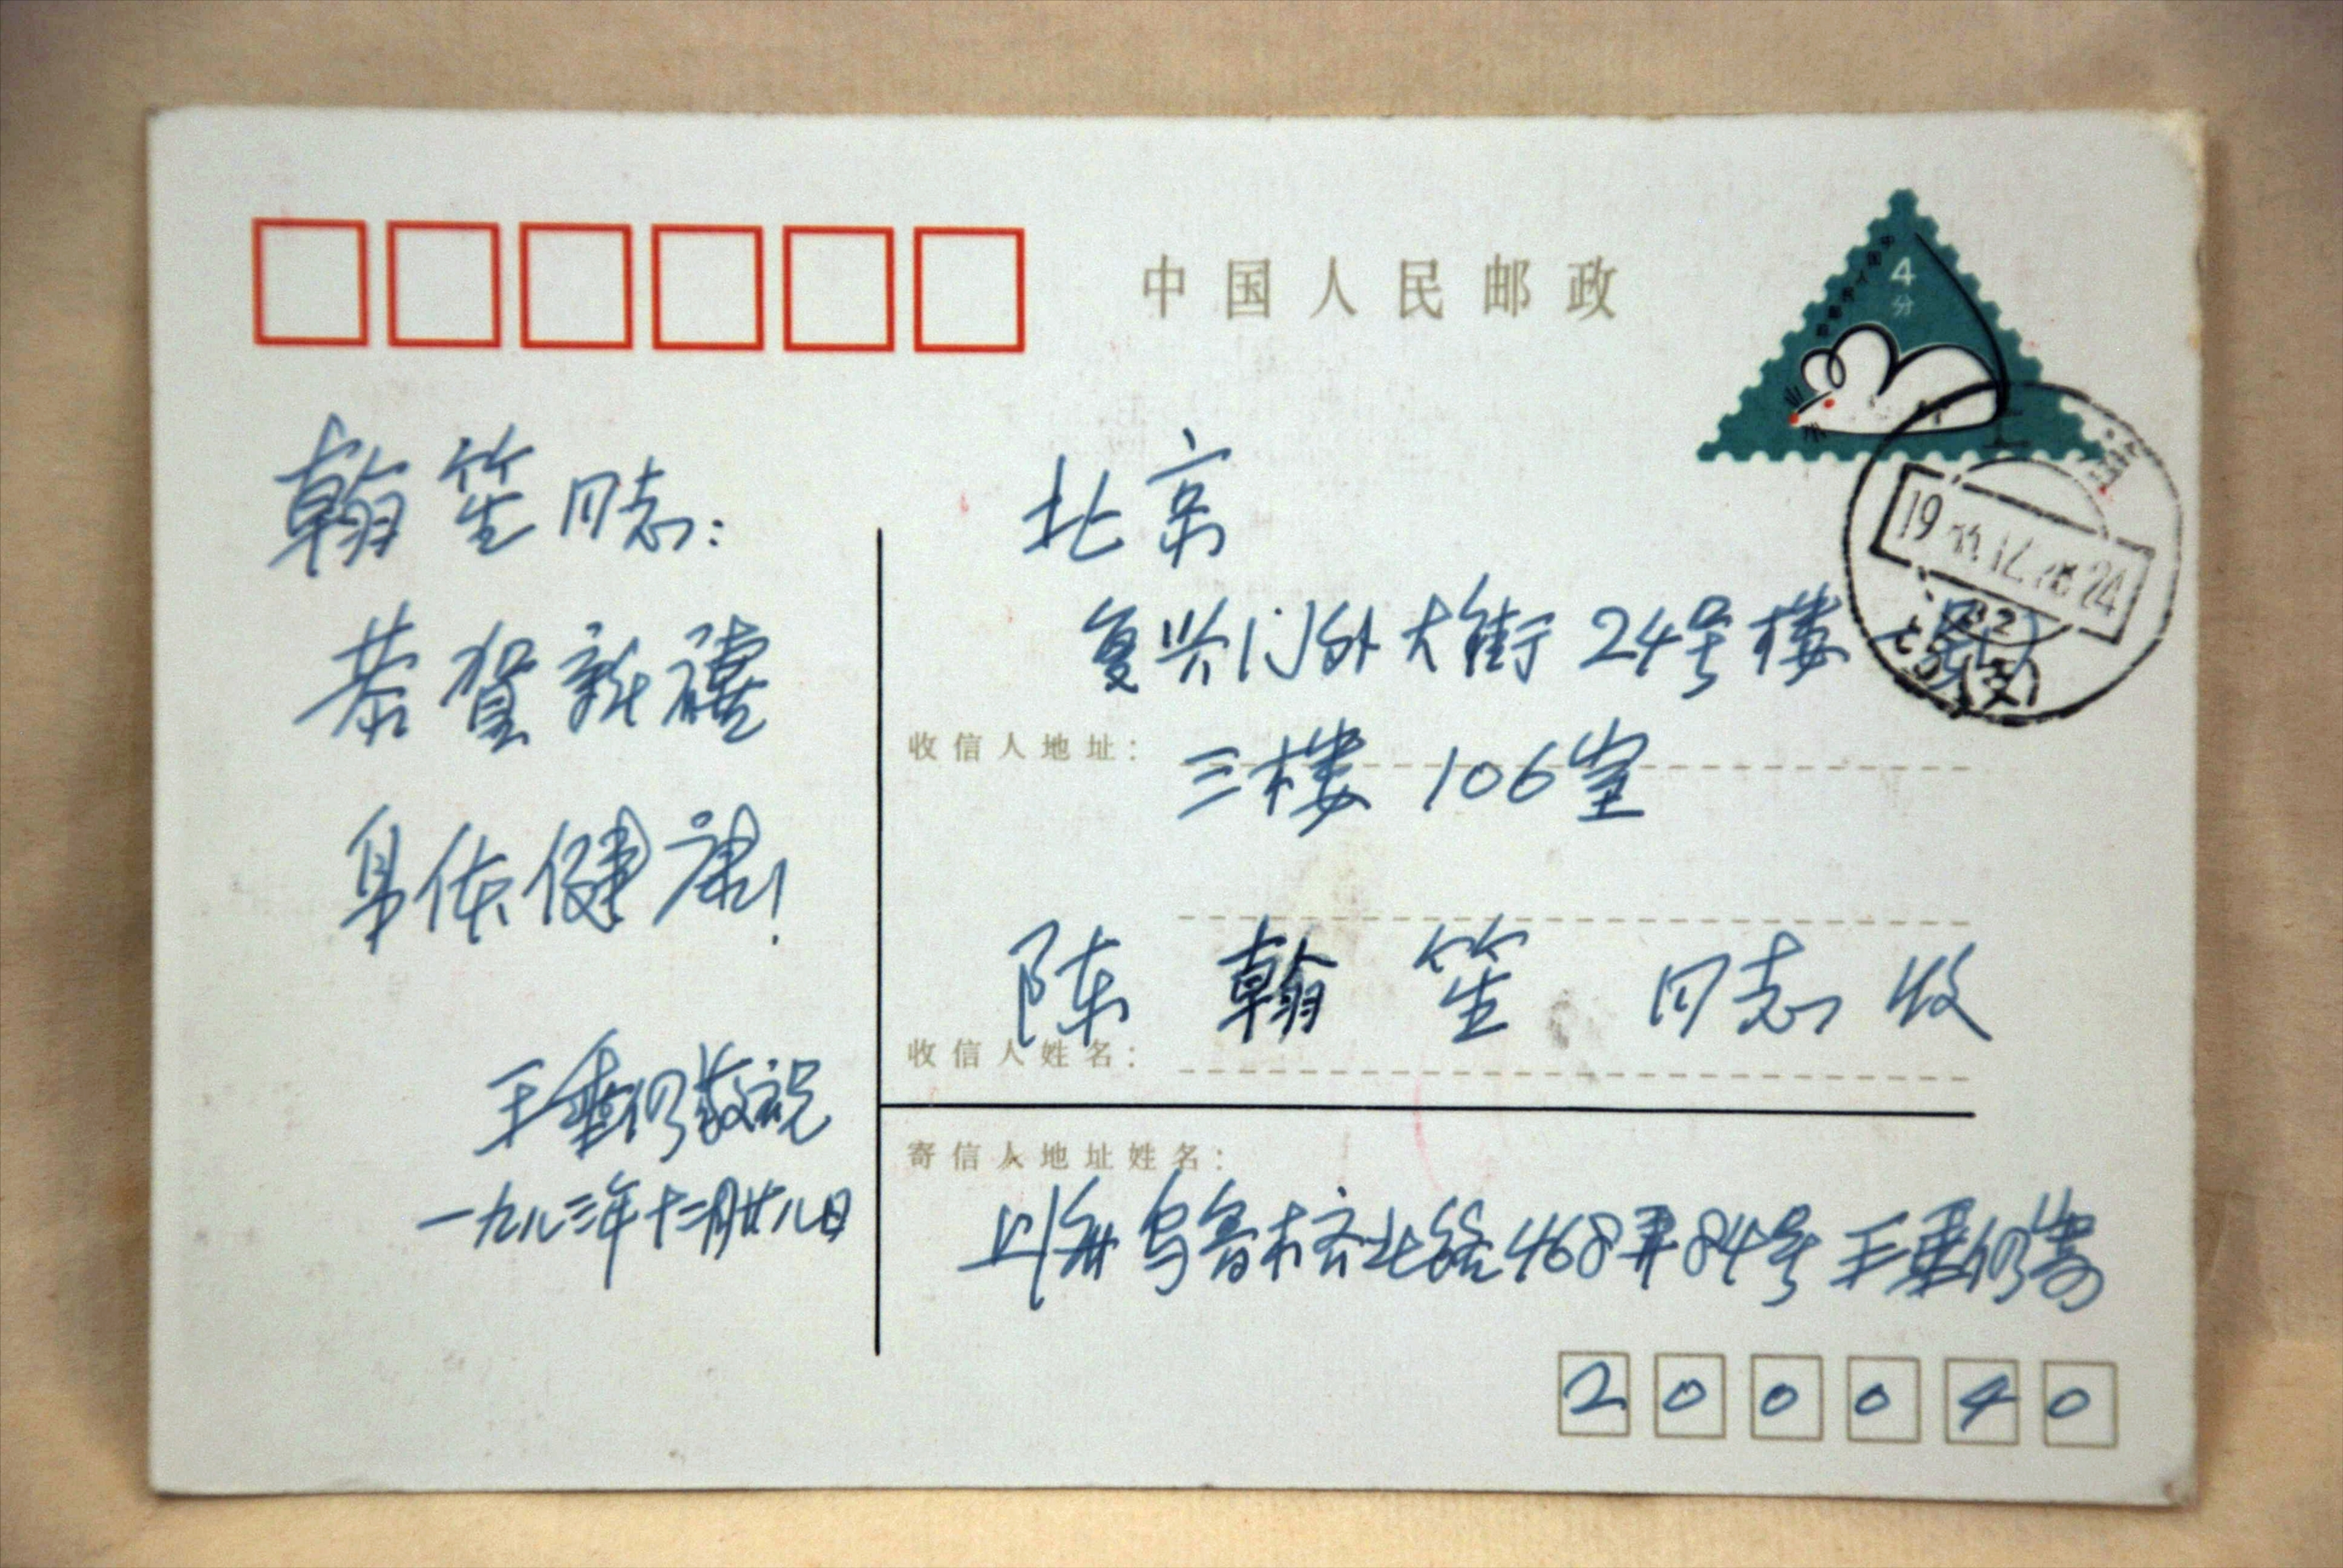 中国人民邮政
中国人民邮政
4
分
翰笙同志：
恭贺新禧
身体健康！
王垂仍敬祝
一九八三年十二月廿八日
北京
复兴门外大街24号楼
收信人地址：
三楼 106室
陈翰笙 同志 收
收信人姓名：
寄信人地址姓名：
上海乌鲁木齐北路468弄84号 王垂仍寄
200040
上海